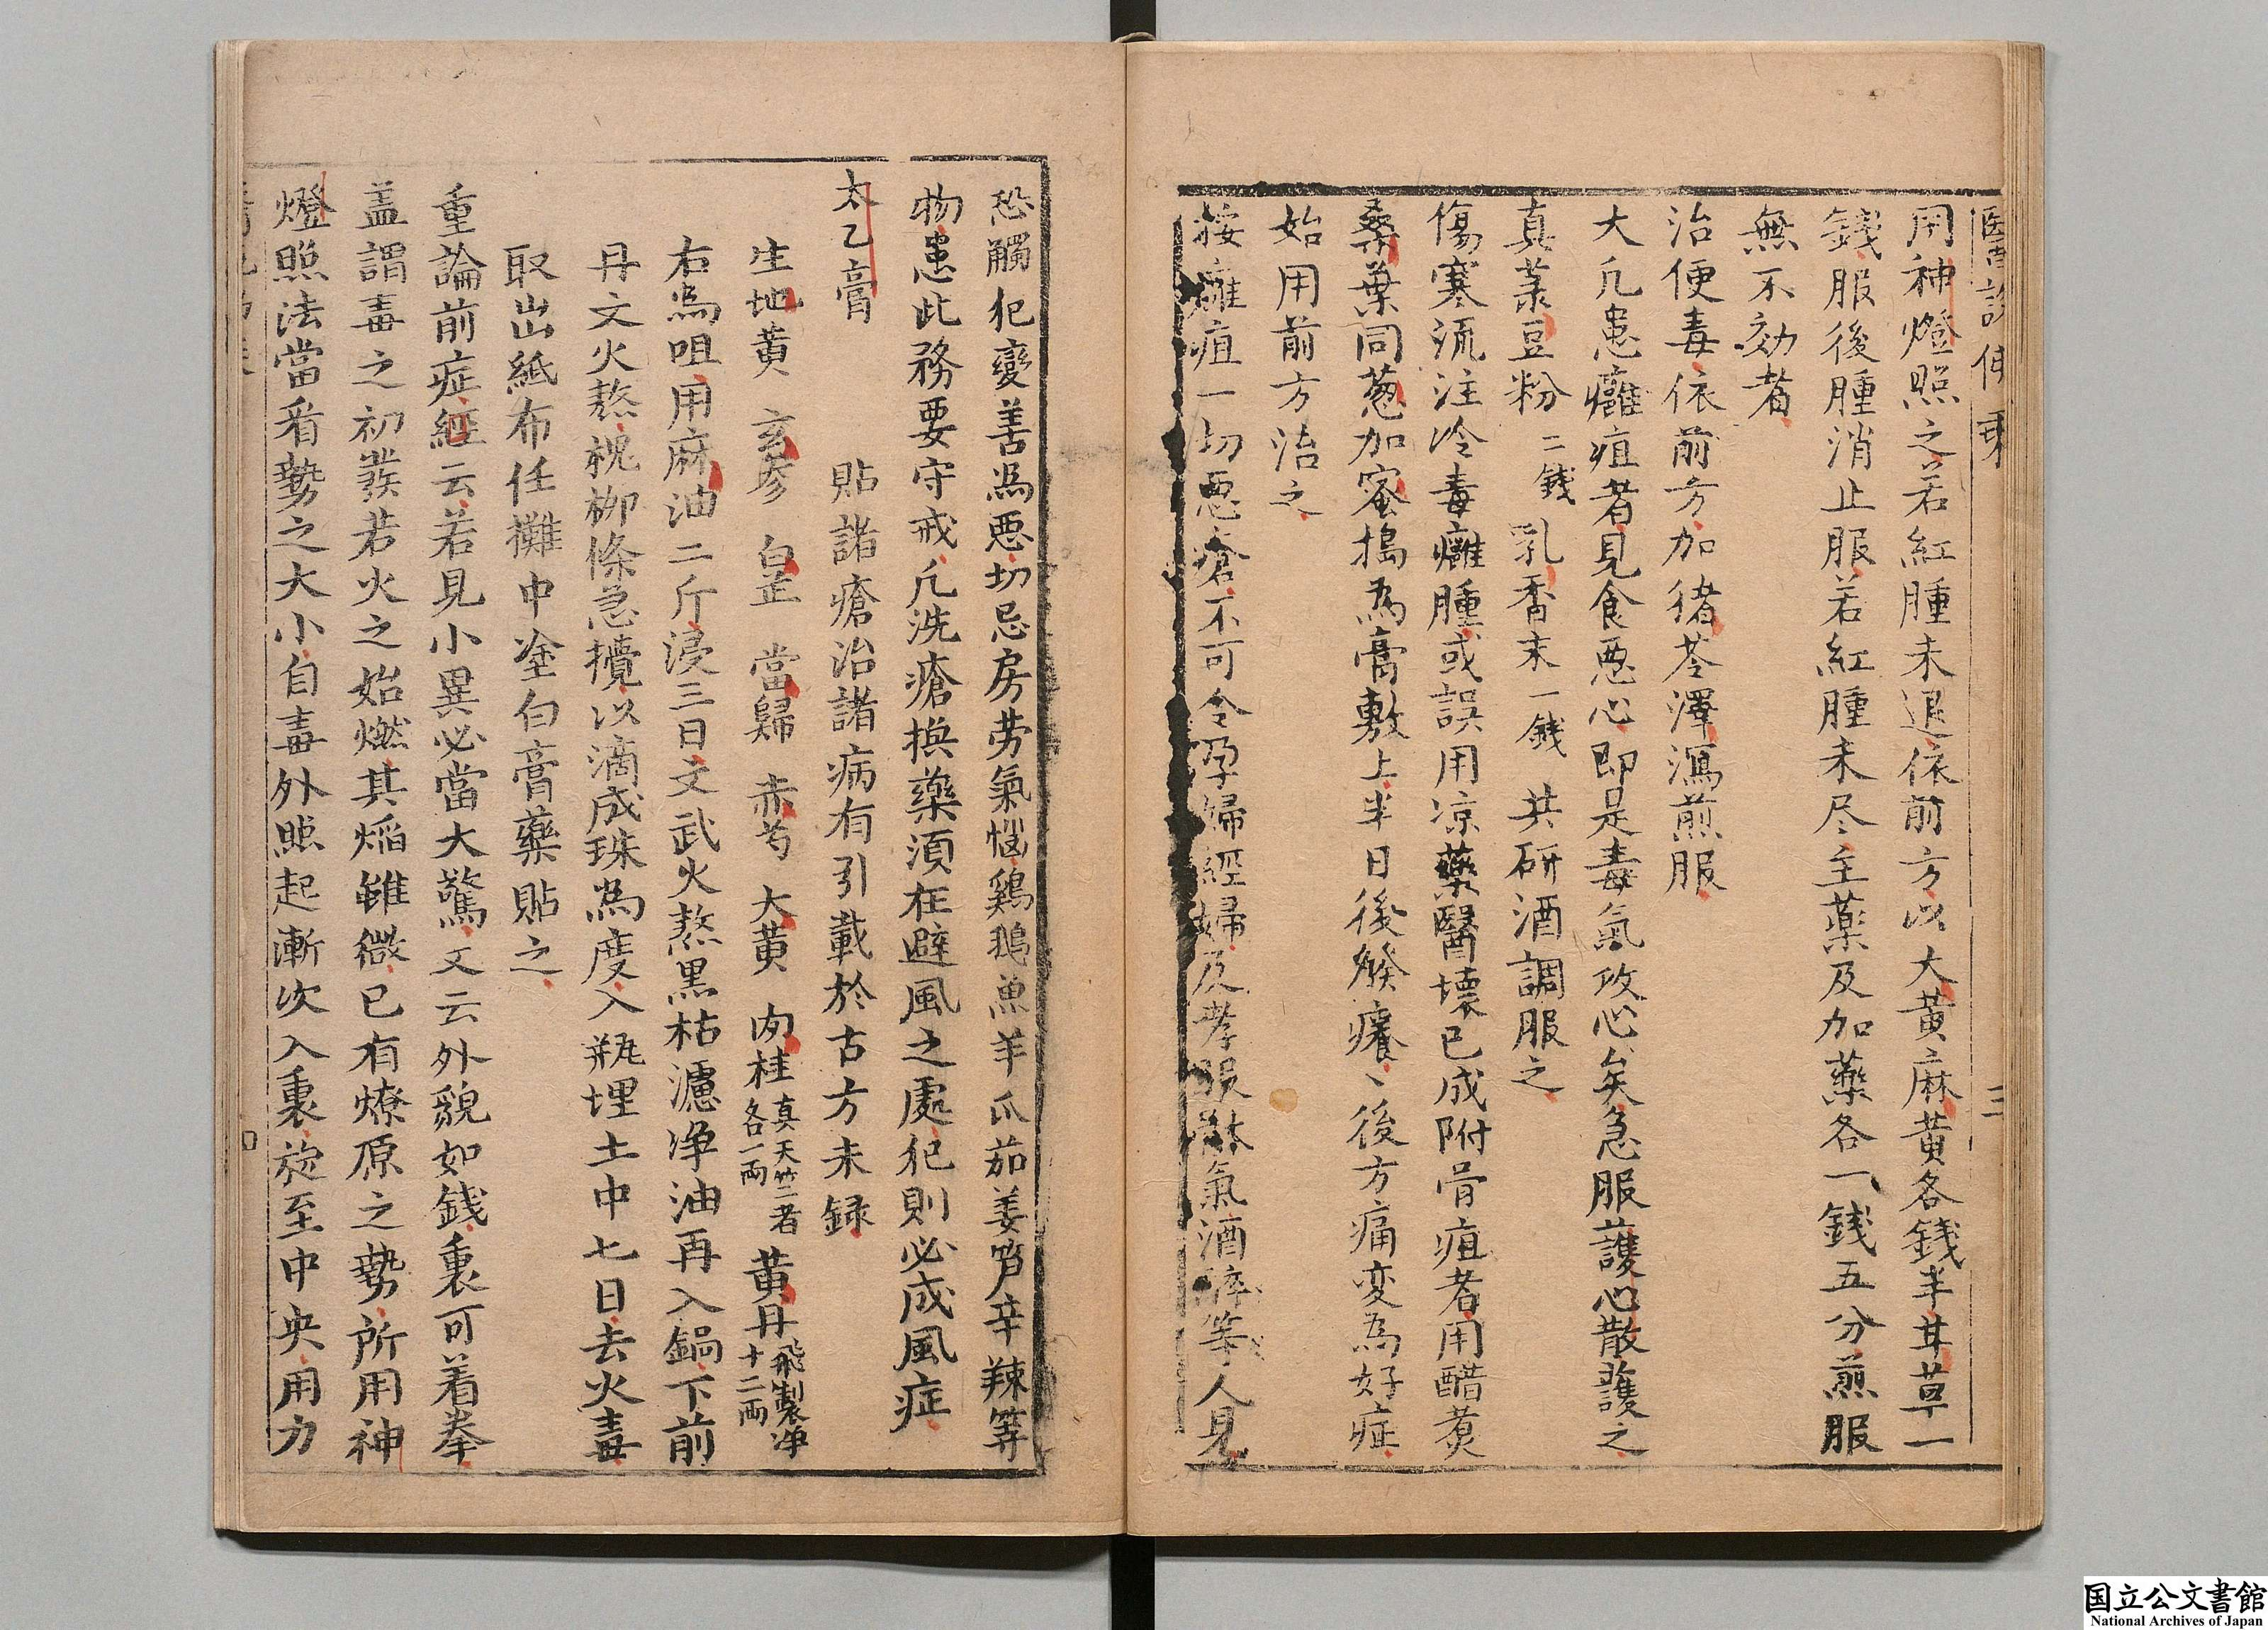 用神燈照之若紅腫未退依前方以大黄麻黄各錢半甘草一
錢服後腫消止服若紅腫未尽主藥及加藥各一錢五分煎服
無不効者
治便毒依前方加猪苓澤瀉煎服
大凡患癰疽者見食惡心即是毒氣攻心矣急服護心散護之
真菉豆粉二錢乳香末一錢共研酒調服之
傷寒流注冷毒癰腫或誤用凉藥醫壊已成附骨疽者用醋煑
桑葉同葱加蜜搗為膏敷上半日後發癢、後方痛変為好症
始用前方治之
按癰疽一切惡瘡不可令孕婦經婦及孝服狐氣酒醉等人見
恐觸犯變善為惡切忌房劳氣惱鷄鵝魚羊瓜茄姜笋辛辣等
物患此務要守戒凡洗瘡换藥須在避風之處犯則必成風症
太乙膏 貼諸瘡治諸病有引載於古方未録
生地黄 玄參 白芷 當歸 赤芍 大黄 肉桂真天竺二者各一両 黄丹飛製净十二両
右爲咀用麻油二斤浸三日文武火熬黒枯濾净油再入鍋下前
丹文火熬槐柳條急攪以滴成珠為度入瓶埋土中七日去火毒
取出紙布任攤中塗白膏藥貼之
重論前症經云若見小異必當大驚又云外貌如錢裏可着拳
盖謂毒之初發若火之始燃其焰雖微已有燎原之勢所用神
燈照法當看勢之大小自毒外照起漸次入裏旋至中央用力
三
国立公文書館
National Archives of Japan